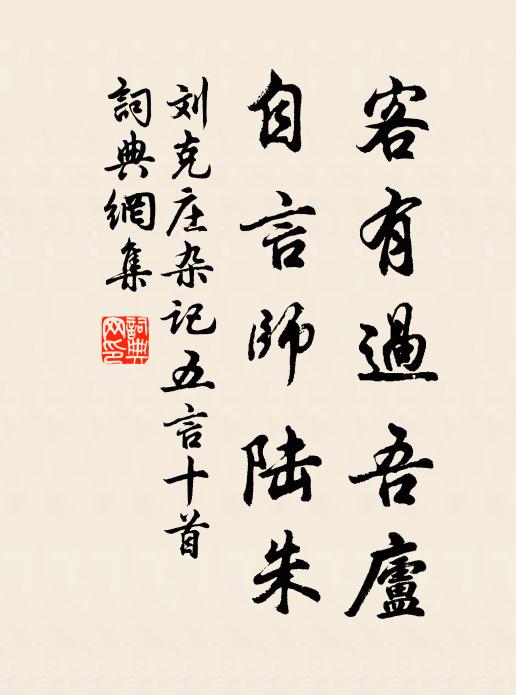 客有過吾廬
自言師陆朱
刘克庄杂记五言十首
詞典網集
詞典网印